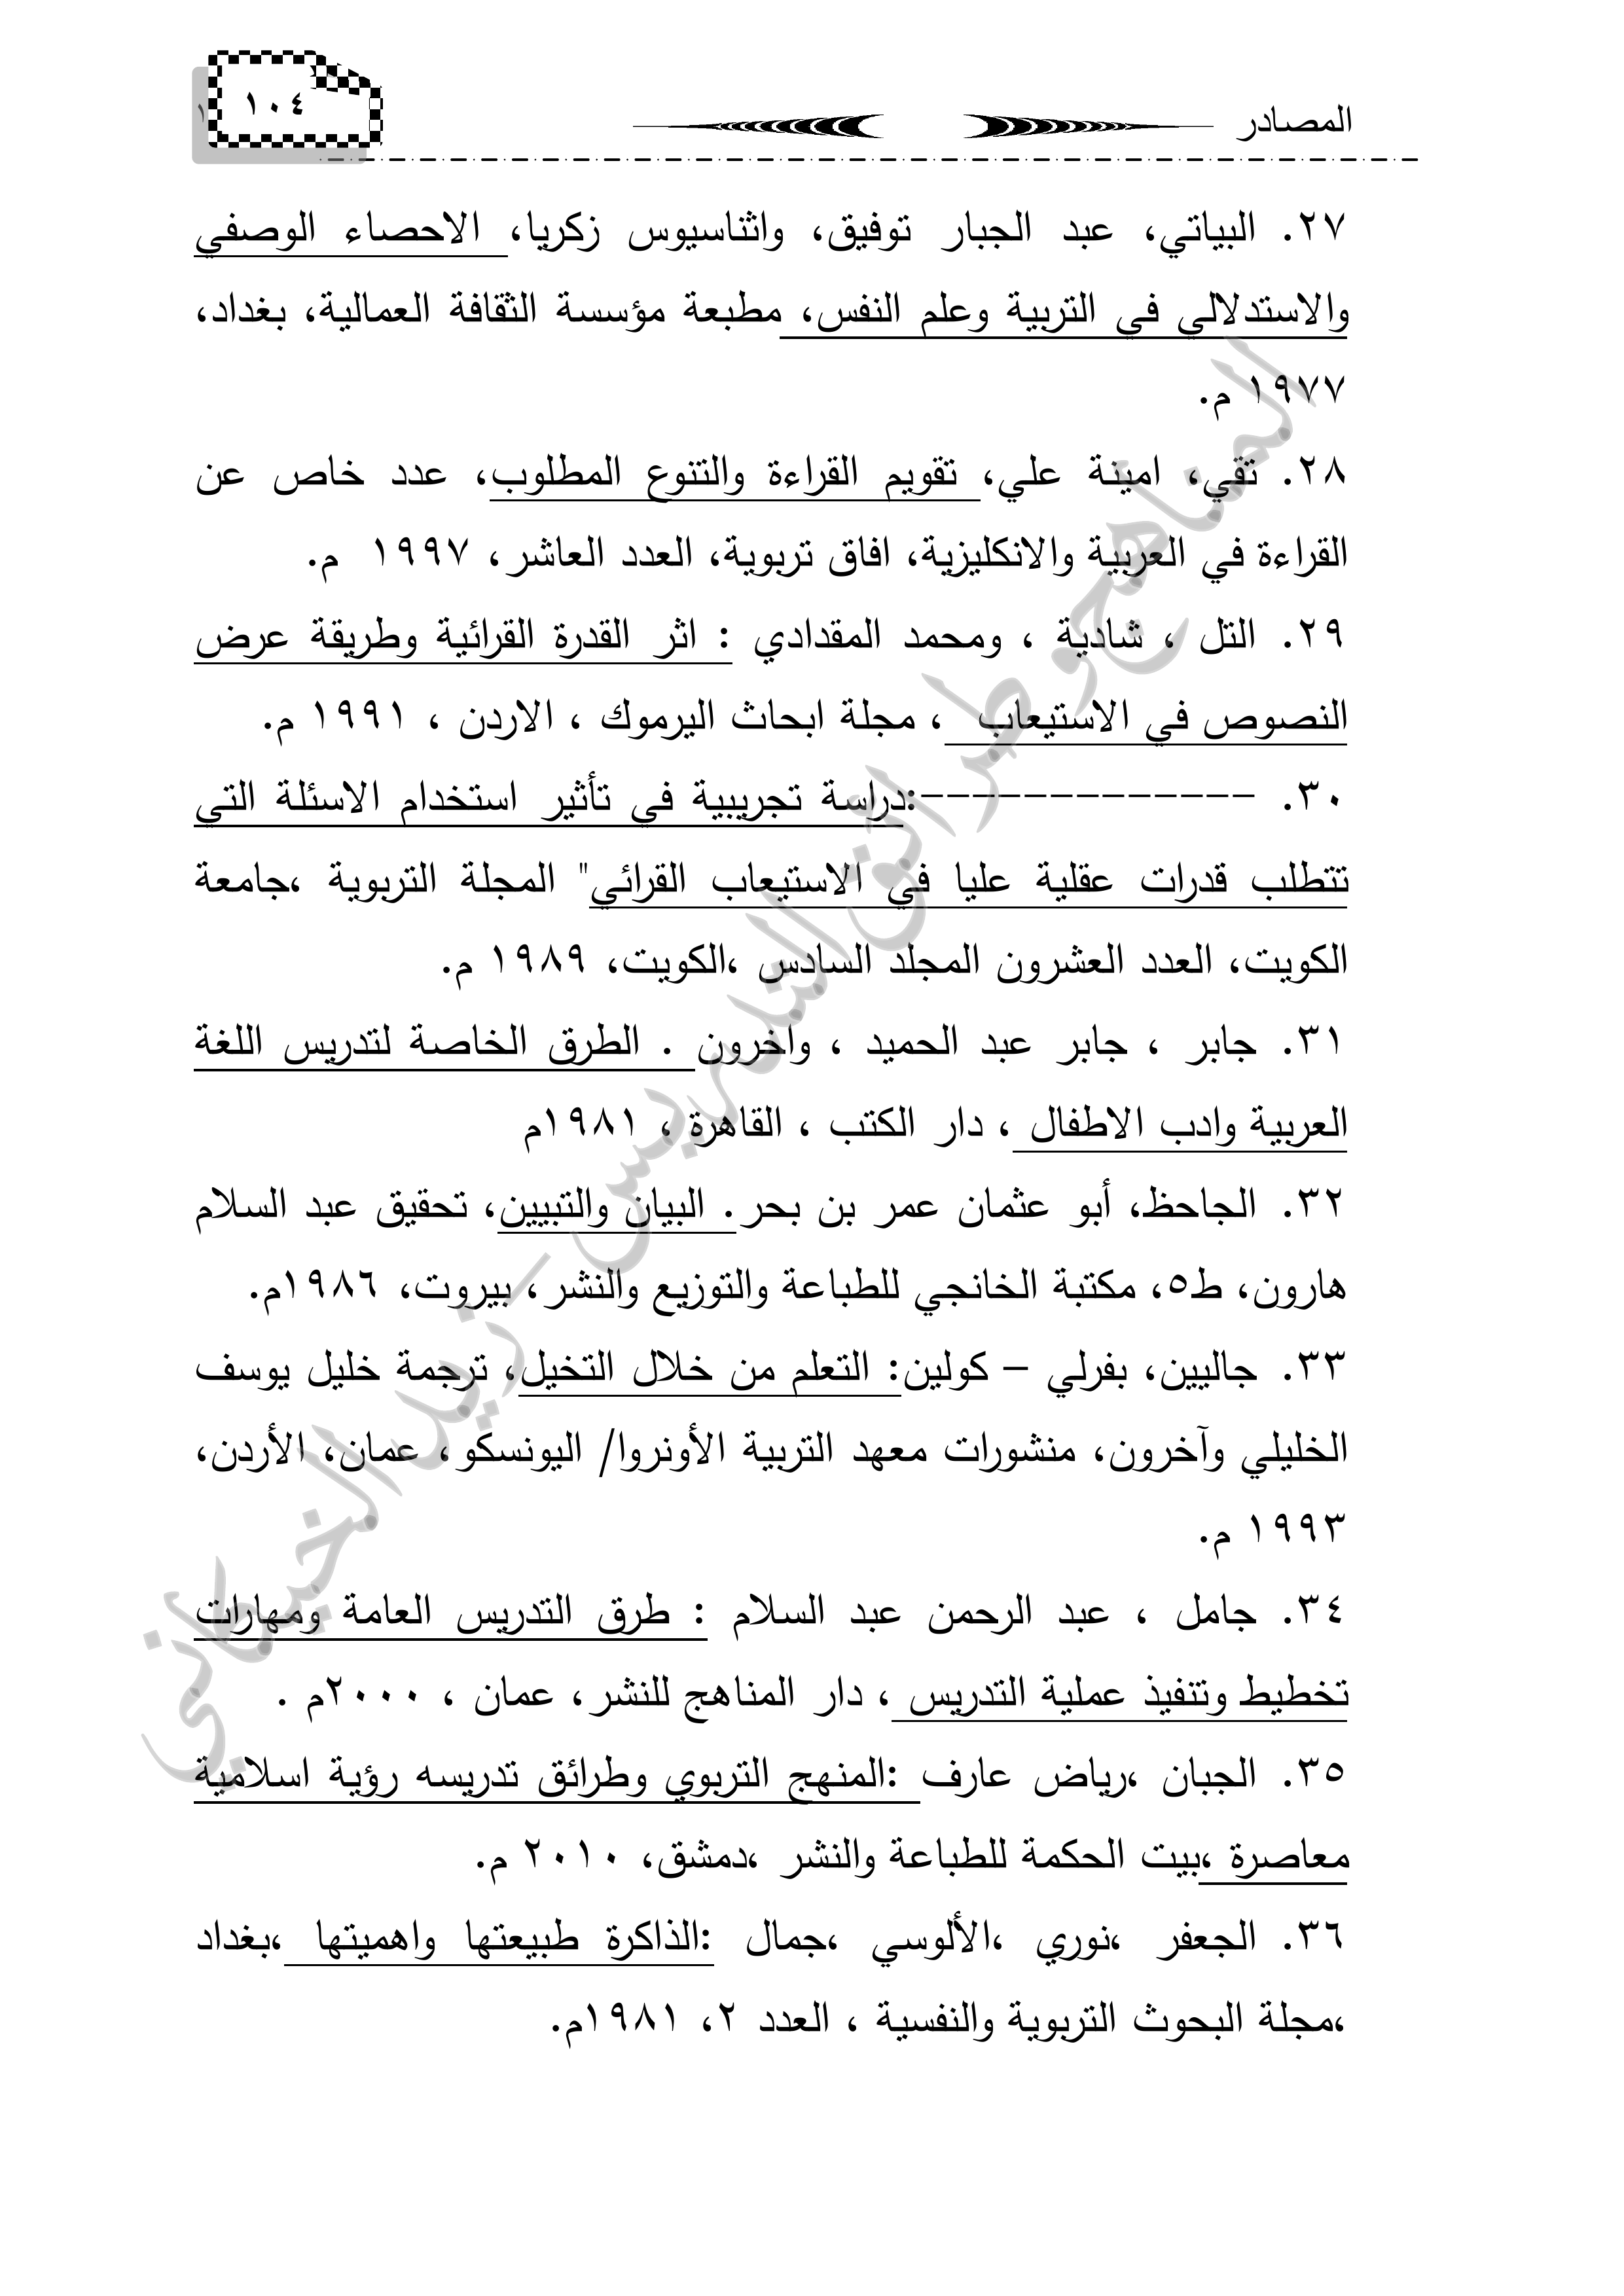 المصادر
١٠٤
٢٧. البياتي، عبد الجبار توفيق، واثناسيوس زكريا، الاحصاء الوصفي
والاستدلالي في التربية وعلم النفس، مطبعة مؤسسة الثقافة العمالية، بغداد،
١٩٧٧ م.
٢٨. تقي، امينة علي، تقويم القراءة والتنوع المطلوب، عدد خاص عن
القراءة في العربية والانكليزية، افاق تربوية، العدد العاشر، ١٩٩٧ م.
٢٩. التل ، شادية ، ومحمد المقدادي : اثر القدرة القرائية وطريقة عرض
النصوص في الاستيعاب ، مجلة ابحاث اليرموك ، الاردن ، ١٩٩١ م.
٣٠. -------------:دراسة تجريبية في تأثير استخدام الاسئلة التي
تتطلب قدرات عقلية عليا في الاستيعاب القرائي" المجلة التربوية ،جامعة
الكويت، العدد العشرون المجلد السادس ،الكويت، ١٩٨٩ م.
٣١. جابر ، جابر عبد الحميد ، واخرون . الطرق الخاصة لتدريس اللغة
العربية وادب الاطفال ، دار الكتب ، القاهرة ، ١٩٨١م
٣٢. الجاحظ، أبو عثمان عمر بن بحر. البيان والتبيين، تحقيق عبد السلام
هارون، ط٥، مكتبة الخانجي للطباعة والتوزيع والنشر، بيروت، ١٩٨٦م.
٣٣. جاليين، بفرلي – كولين: التعلم من خلال التخيل، ترجمة خليل يوسف
الخليلي وآخرون، منشورات معهد التربية الأونروا/ اليونسكو، عمان، الأردن،
١٩٩٣ م.
٣٤. جامل ، عبد الرحمن عبد السلام : طرق التدريس العامة ومهارات
تخطيط وتنفيذ عملية التدريس ، دار المناهج للنشر، عمان ، ٢٠٠٠م .
٣٥. الجبان ،رياض عارف :المنهج التربوي وطرائق تدريسه رؤية اسلامية
معاصرة ،بيت الحكمة للطباعة والنشر ،دمشق، ٢٠١٠ م.
٣٦. الجعفر ،نوري ،الألوسي ،جمال :الذاكرة طبيعتها واهميتها ،بغداد
،مجلة البحوث التربوية والنفسية ، العدد ٢، ١٩٨١م.
المناهج وطرائق التدريس – زيد الخيكاني